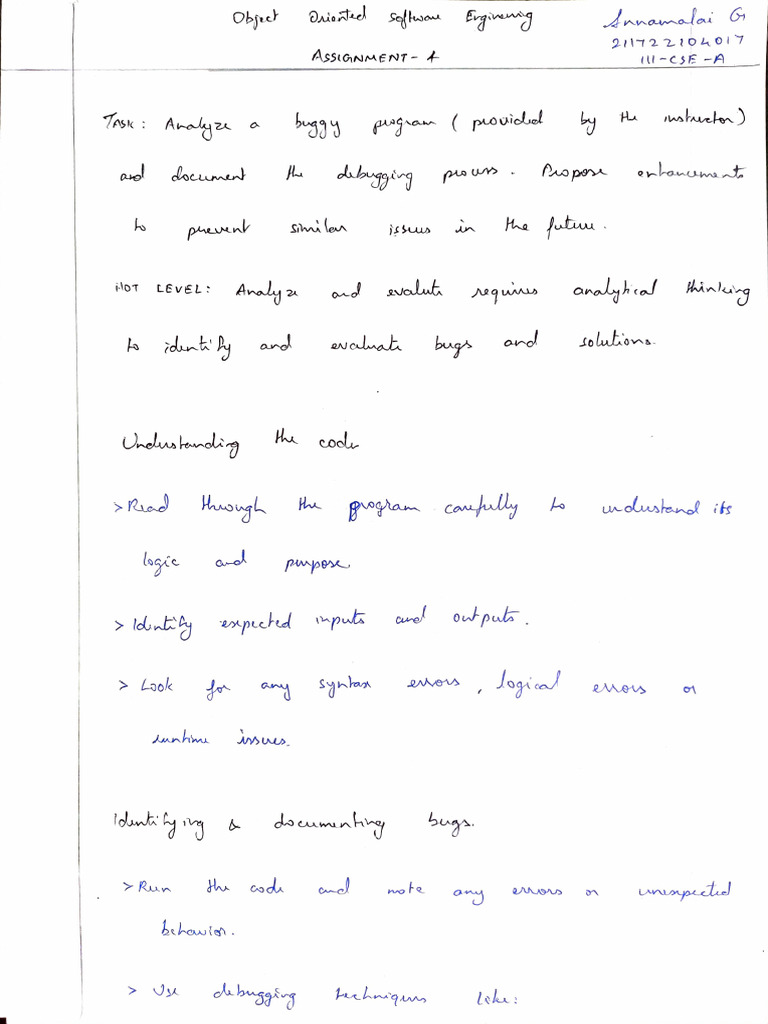 Object Oriented Software Enginering
Annamalai G
211722104017
III-CSE-A
ASSIGNMENT-4
TASK: Analyze a buggy program (provided by the instructor)
and document the debugging process. Propose enhancements
to prevent similar issues in the future.
HOT LEVEL: Analyze and evalute requires analytical thinking
to identify and evaluate bugs and solutions.
Understanding the code
> Read through the program carefully to understand its
logic and purpose
> Identify expected inputs and outputs.
> Look for any syntax errors, logical errors or
runtime issues.
Identifying & documenting bugs.
> Run the code and note any errors or unexpected
behavior.
> Use debugging techniques like: